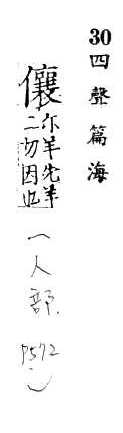 30四聲篇海
儴
尓羊先羊
二切因也
(人部.
P572)